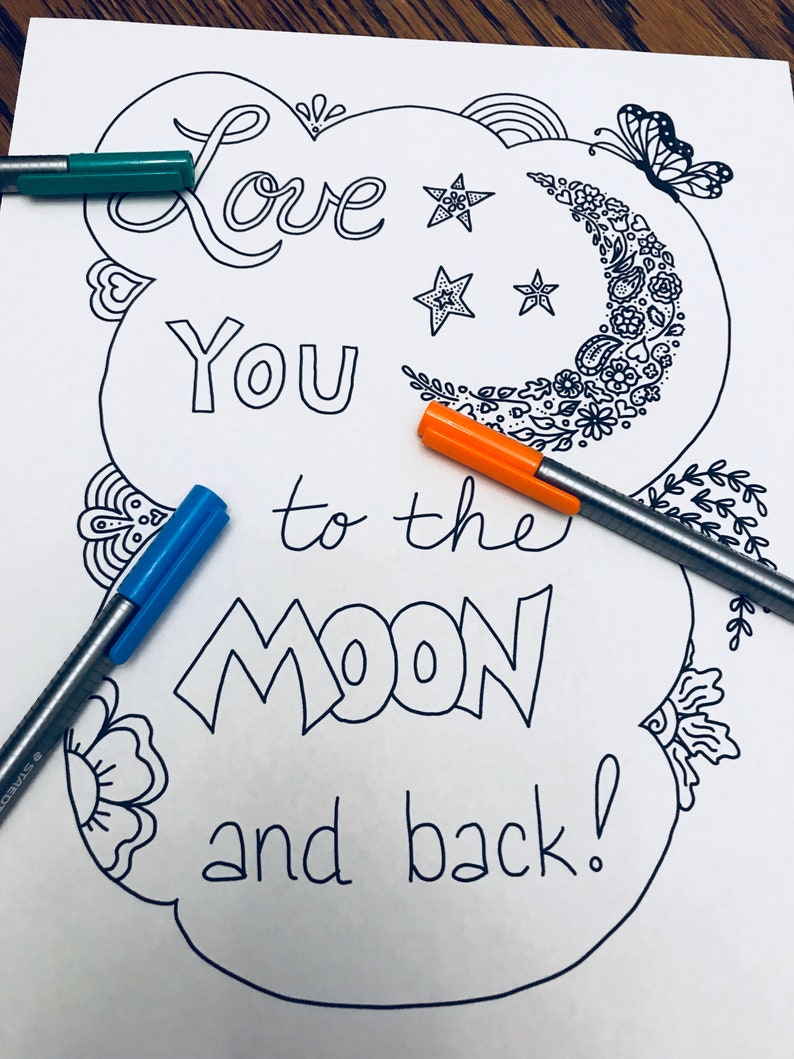 Love
YOU
to the
MOON
and back!
STAEDT